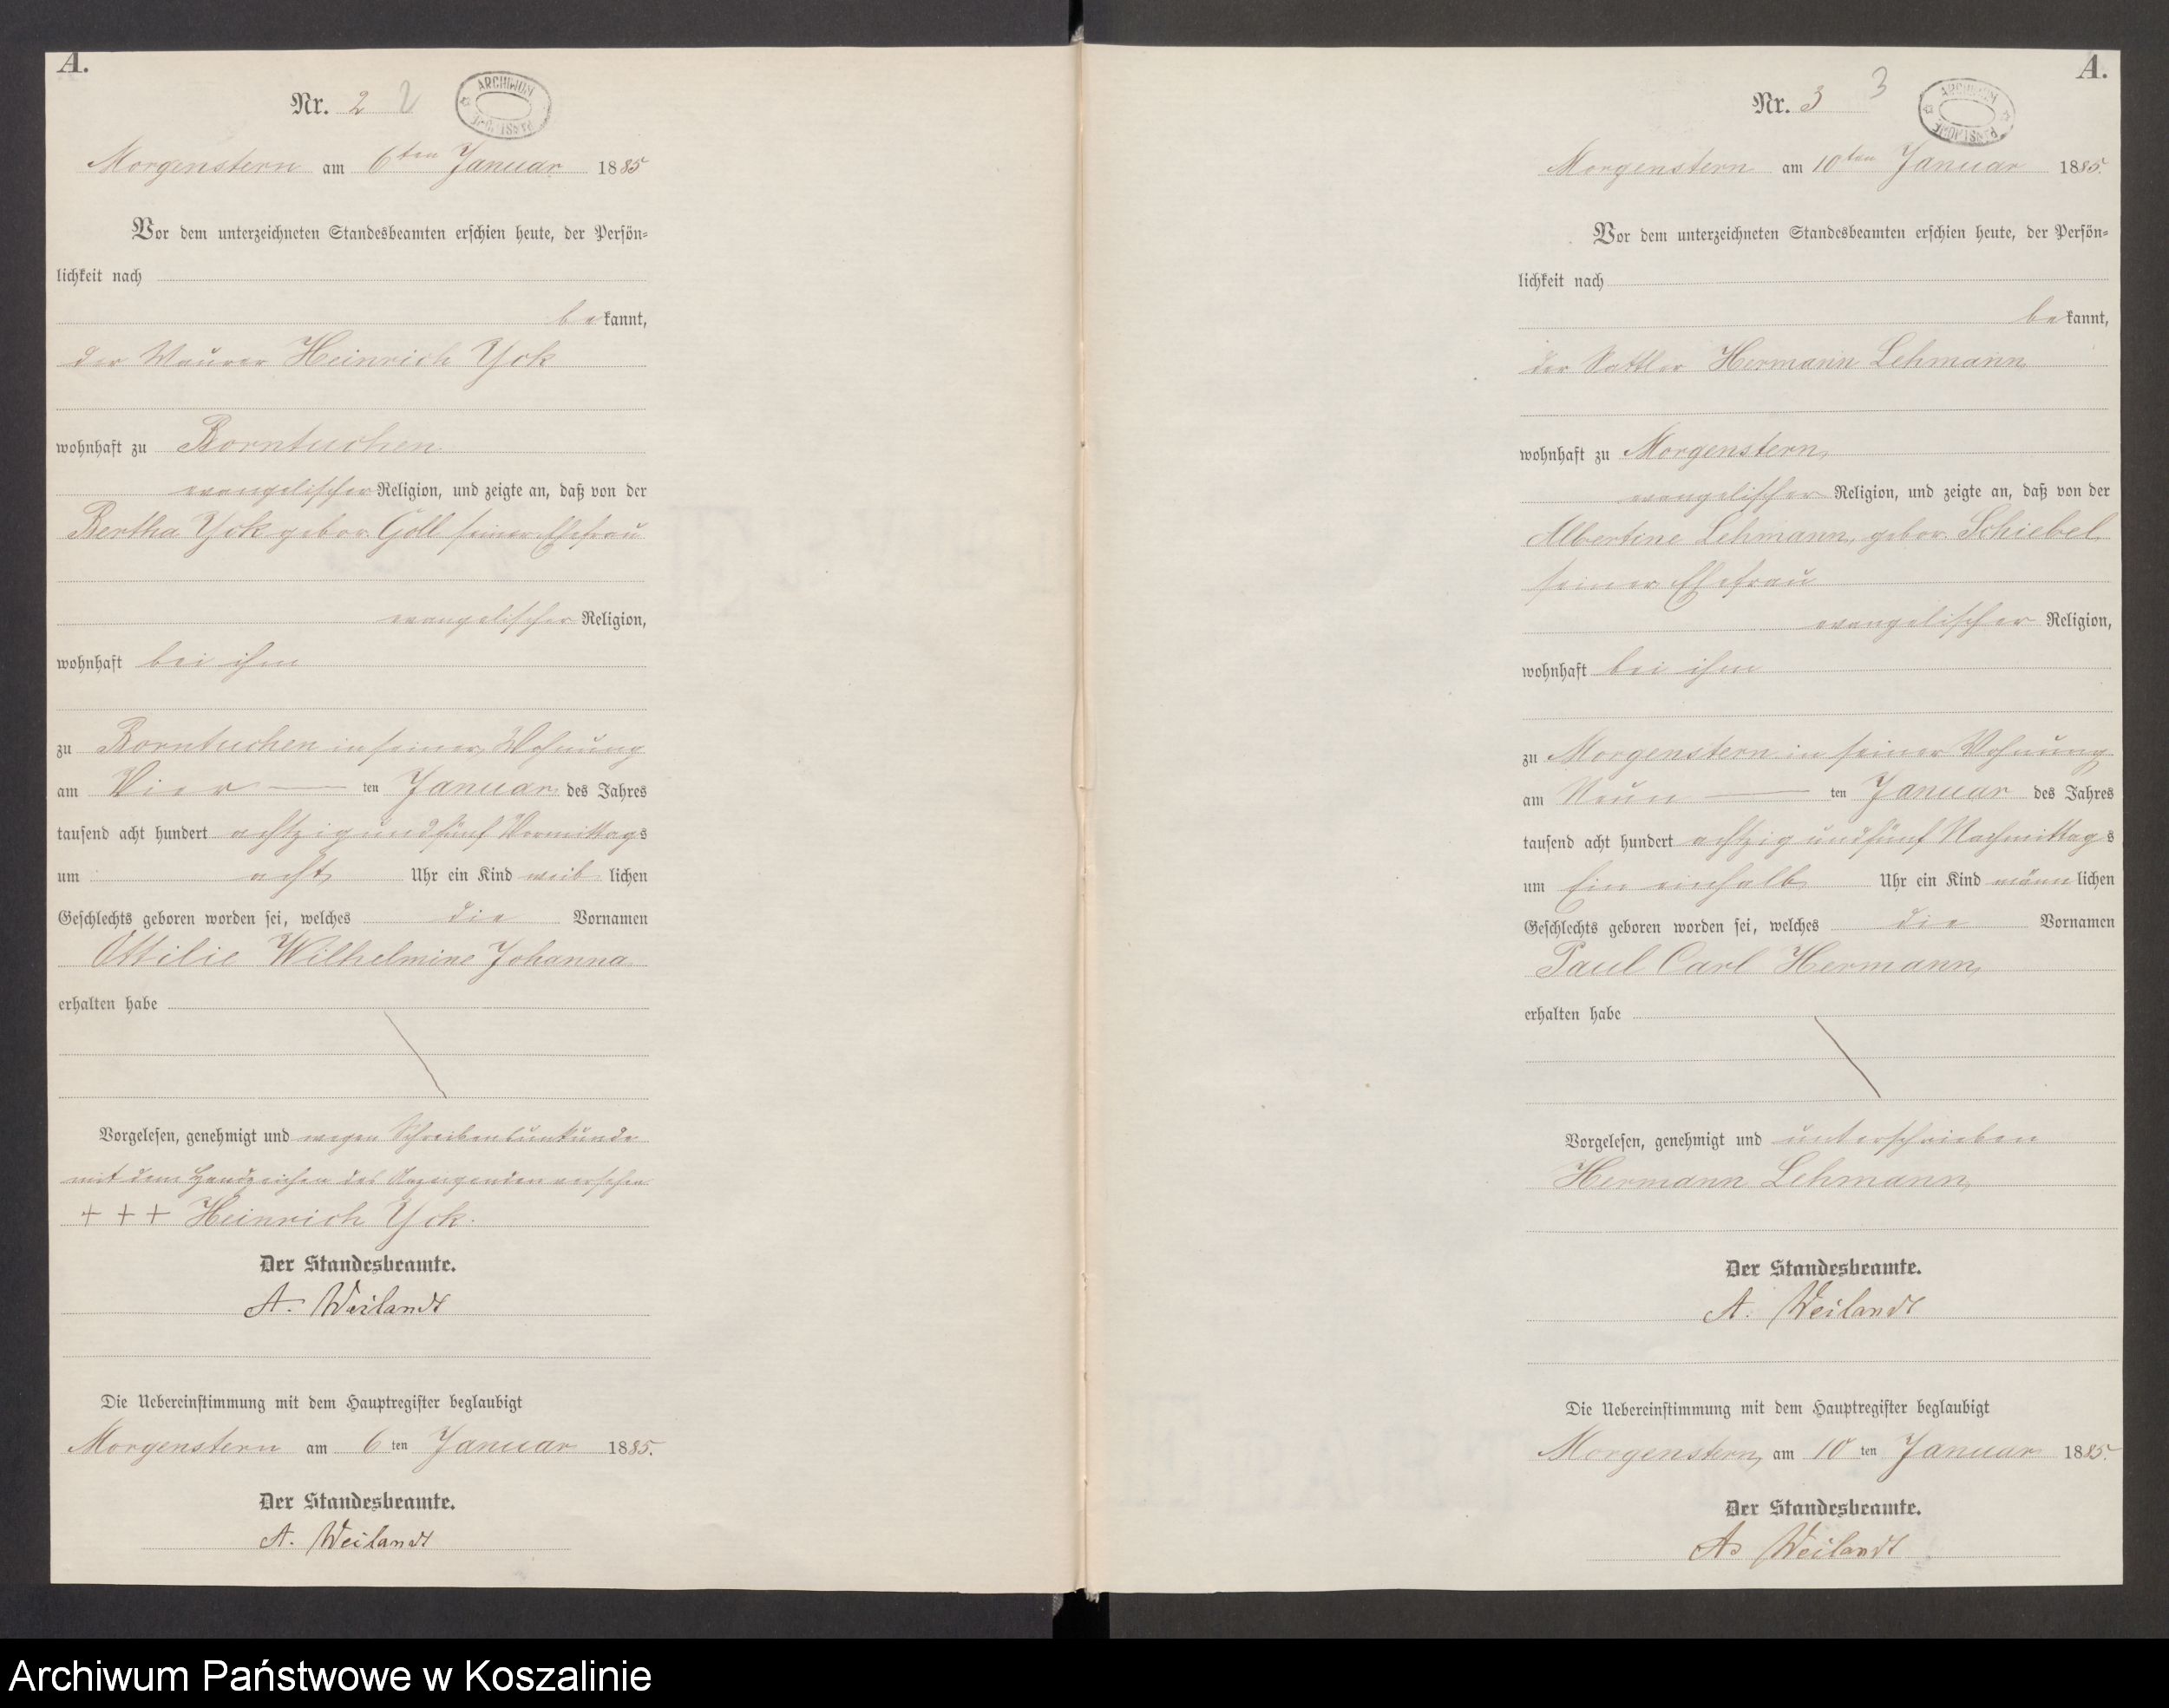 A.
Nr. 2 2
ARCHIWUM PAŃSTWOWE
Morgenstern am 6ten Januar 1885
Vor dem unterzeichneten Standesbeamten erschien heute, der Persön-
lichkeit nach
bekannt,
der Maurer Heinrich Yok
wohnhaft zu Borntuchen
evangelischer Religion, und zeigte an, daß von der
Bertha Yok gebor. Goll seiner Ehefrau
evangelischer Religion,
wohnhaft bei ihm
zu Borntuchen in seiner Wohnung
am Vier ten Januar des Jahres
tausend acht hundert achtzig und fünf Vormittags
um acht Uhr ein Kind weiblichen
Geschlechts geboren worden sei, welches die Vornamen
Ottilie Wilhelmine Johanna
erhalten habe
Vorgelesen, genehmigt und wegen Schreibensunkunde
mit dem Handzeichen des Anzeigenden versehen
+ + + Heinrich Yok.
Der Standesbeamte.
A. Weilandt
Die Uebereinstimmung mit dem Hauptregister beglaubigt
Morgenstern am 6 ten Januar 1885.
Der Standesbeamte.
A. Weilandt
A.
Nr. 3 3
ARCHIWUM PAŃSTWOWE
Morgenstern am 10ten Januar 1885.
Vor dem unterzeichneten Standesbeamten erschien heute, der Persön-
lichkeit nach
bekannt,
der Sattler Hermann Lehmann
wohnhaft zu Morgenstern,
evangelischer Religion, und zeigte an, daß von der
Albertine Lehmann, gebor. Schiebel
seiner Ehefrau
evangelischer Religion,
wohnhaft bei ihm
zu Morgenstern in seiner Wohnung
am Neun ten Januar des Jahres
tausend acht hundert achtzig und fünf Nachmittags
um Ein einhalb Uhr ein Kind männlichen
Geschlechts geboren worden sei, welches die Vornamen
Paul Carl Hermann,
erhalten habe
Vorgelesen, genehmigt und unterschrieben
Hermann Lehmann,
Der Standesbeamte.
A. Weilandt
Die Uebereinstimmung mit dem Hauptregister beglaubigt
Morgenstern, am 10 ten Januar 1885.
Der Standesbeamte.
A. Weilandt
Archiwum Państwowe w Koszalinie